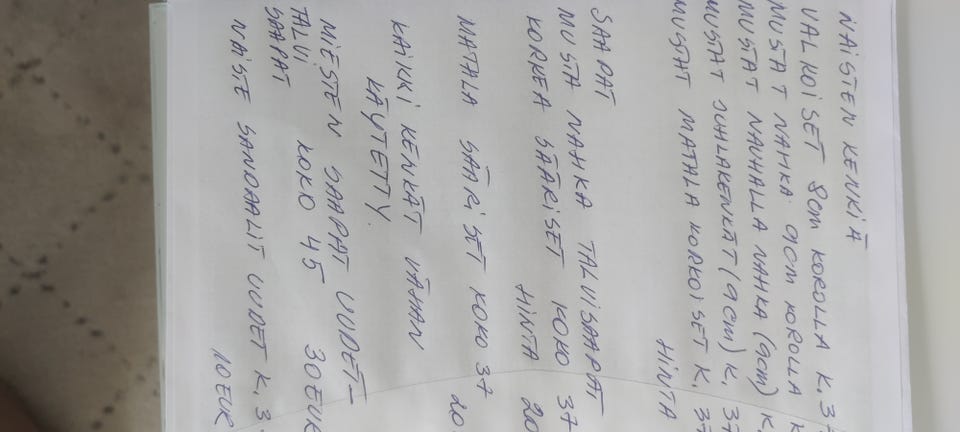 NAISTEN KENKIÄ
VALKOISET 8CM KOROLLA K. 3
MUSTA NAHKA 9CM KOROLLA K
MUSTAT NAUHALLA NAHKA (9CM) K.
MUSTAT JUHLAKENKÄT (9CM) K. 37
MUSTAT MATALA KORKOISET K. 37
HINTA
SAAPAT
MUSTA NAHKA TALVISAAPAT
KORKEA SÄÄRISET KOKO 37
HINTA 20
MATALA SÄÄRISET KOKO 37
20
KAIKKI KENKÄT VÄHÄN
KÄYTETTY.
MIESTEN SAAPAT UUDET-
TALVI KOKO 45 30EUR
SAAPAT
NAISTE SANDAALIT UUDET K. 3
10EUR